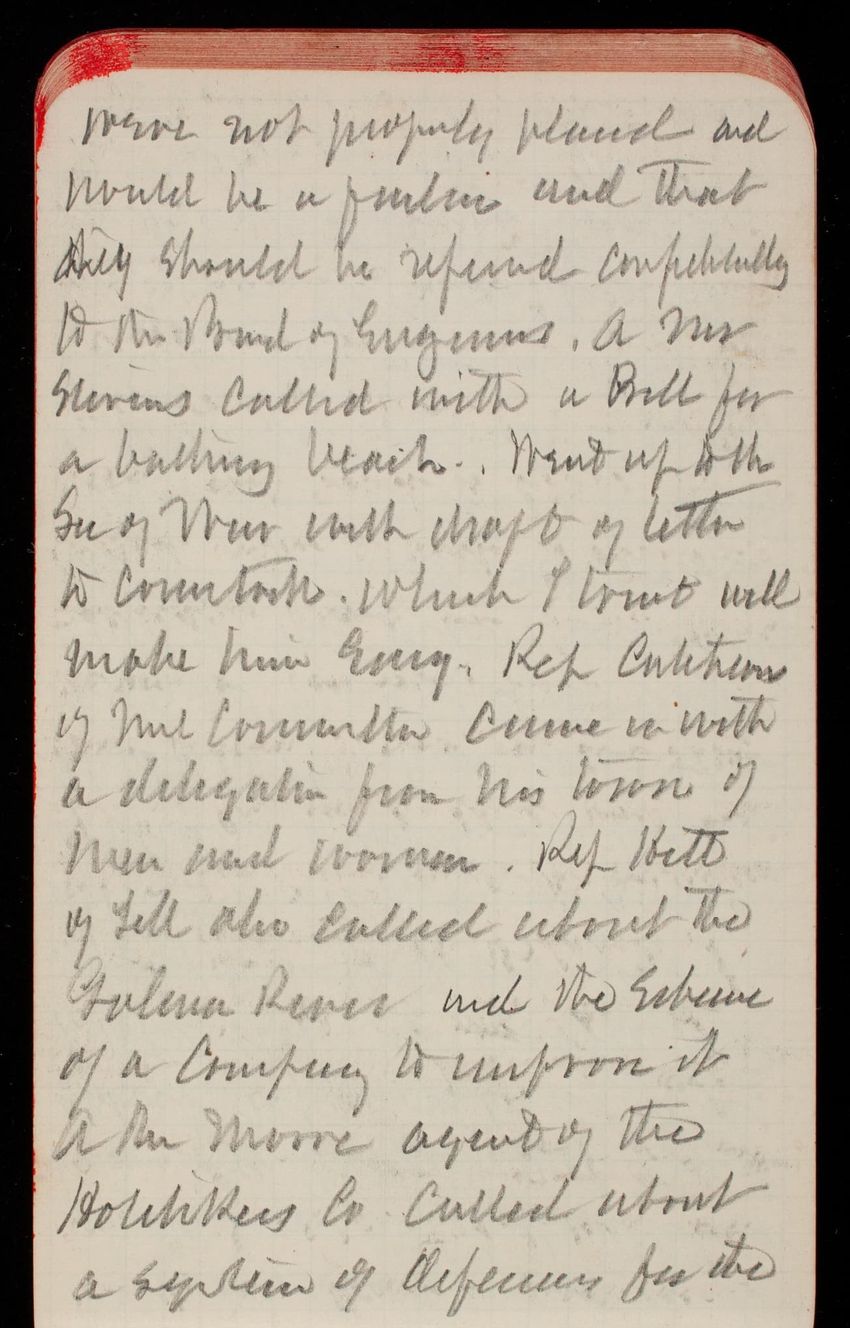 were not properly placed and
would be a failure and that
they should be referred confidentially
to the Board of Engineers. A Mr
Stevens called with a Bill for
a bathing beach. Went up to the
Sec of War with draft of letter
to Comstock. Which I trust will
make him Easy. Rep Cutcheon
of Mil Committee came in with
a delegation from his town of
men and women. Rep Hitt
of Ill also called about the
Galena River and the Scheme
of a Company to improve it
A Mr Moore agent of the
Hotchkiss Co Called about
a System of defenses for the